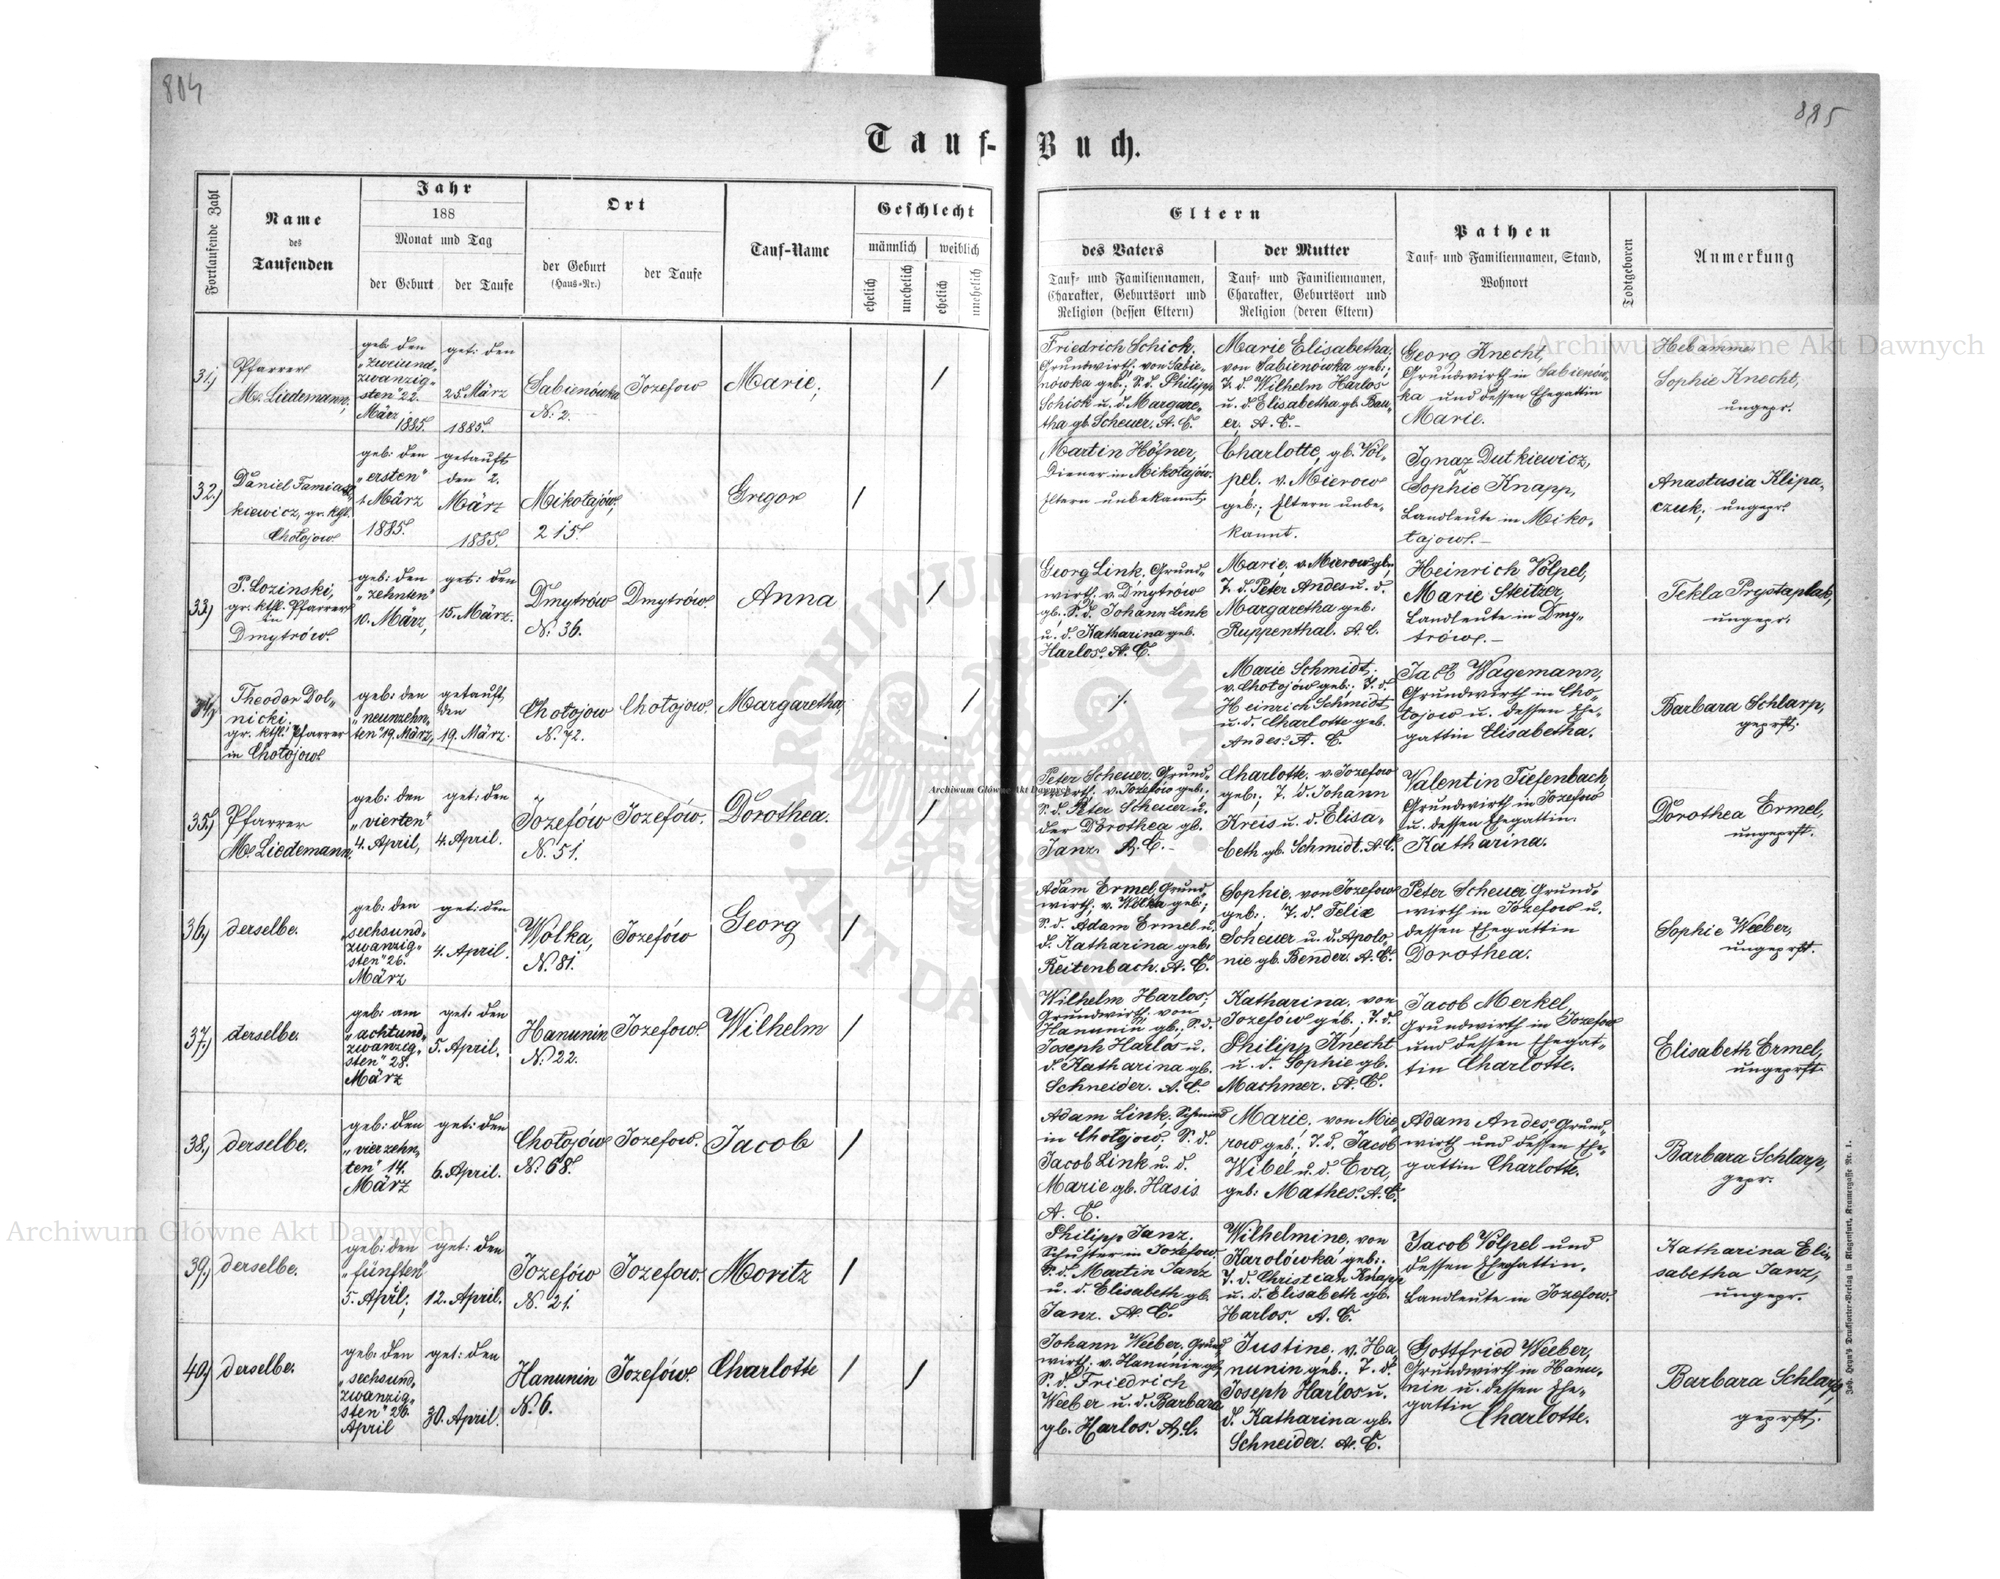 804
885
Tauf-Buch.
Fortlaufende Zahl
Name
des
Taufenden
Jahr
188
Monat und Tag
der Geburt
der Taufe
Ort
der Geburt
(Haus-Nr.)
der Taufe
Tauf-Name
Geschlecht
männlich
weiblich
ehelich
unehelich
ehelich
unehelich
Eltern
des Vaters
Tauf- und Familiennamen,
Charakter, Geburtsort und
Religion (dessen Eltern)
der Mutter
Tauf- und Familiennamen,
Charakter, Geburtsort und
Religion (deren Eltern)
Pathen
Tauf- und Familiennamen, Stand,
Wohnort
Todtgeboren
Anmerkung
31.)
Pfarrer
M. Liedemann,
geb: den
"zweiund-
zwanzig-
sten" 22.
März
1885.
get: den
25. März
1885.
Sabienówka
N. 2.
Jozefow
Marie,
/
Friedrich Schick,
Grundwirth von Sabie-
nówka geb.; S. d. Philipp
Schick u. d. Margare-
tha gb. Scheuer. A. C.
Marie Elisabetha,
von Sabienówka geb.;
T. d. Wilhelm Harlos
u. d. Elisabetha gb. Bau-
er, A. C. -
Georg Knecht,
Grundwirth in Sabienow-
ka und dessen Ehegattin
Marie.
Hebamme
Sophie Knecht,
ungepr.
32.)
Daniel Tamias-
kiewicz, gr. kthl.
Chołojow
geb: den
"ersten"
1. März
1885.
getauft
den 2.
März
1885.
Mikołajów,
215.
Gregor
/
Martin Höfner,
Diener in Mikołajów.
Eltern unbekannt,
Charlotte, gb. Völ-
pel. v. Mierow
geb:, Eltern unbe-
kannt.
Ignaz Dutkiewicz,
Sophie Knapp,
Landleute in Miko-
łajow. -
Anastasia Klipa-
czuk, ungepr.
33.)
P. Lozinski,
gr. kthl. Pfarrer
in
Dmytrów.
geb: den
"zehnten"
10. März,
get: den
15. März.
Dmytrów
N. 36.
Dmytrów.
Anna
/
Georg Link, Grund-
wirth. v. Dmytrów
gb.; S. d. Johann Link
u. d. Katharina geb.
Harlos. A. C.
Marie, v. Mierow gb.
T. d. Peter Andes u. d.
Margaretha geb:
Ruppenthal. A. C.
Heinrich Völpel,
Marie Steitzer,
Landleute in Dmy-
trów. -
Tekla Prystapluk,
ungepr.
34.)
Theodor Dol-
nicki,
gr. kthl. Pfarrer
in Chołojow
geb: den
"neunzehn-
ten" 19. März,
getauft
den
19. März.
Chołojow
N. 72.
Chołojow.
Margaretha,
/
./.
Marie Schmidt,
v. Chołojów geb:, T. d.
Heinrich Schmidt
u. d. Charlotte geb.
Andes. A. C.
Jacob Wagemann,
Grundwirth in Cho-
łojow u. dessen Ehe-
gattin Elisabetha.
Barbara Schlarp,
geprft.
35.)
Pfarrer
M. Liedemann.
geb: den
"vierten"
4. April,
get: den
4. April.
Jozefów
N. 51.
Jozefów.
Dorothea.
/
Peter Scheuer, Grund-
wirth. v. Jozefów geb.;
S. d. Peter Scheuer u.
der Dorothea gb.
Janz. A. C. -
Charlotte. v. Jozefow
geb:, T. d. Johann
Kreis u. d. Elisa-
beth gb. Schmidt. A. C.
Valentin Tiefenbach,
Grundwirth in Jozefow
u. dessen Ehegattin.
Katharina.
Dorothea Ermel,
ungeprft.
36.)
derselbe.
geb: den
"sechsund-
zwanzig-
sten" 26.
März
get: den
4. April.
Wolka,
N. 81.
Jozefów
Georg
/
Adam Ermel, Grund-
wirth, v. Wolka geb.;
S. d. Adam Ermel u.
d. Katharina geb:
Reitenbach. A. C.
Sophie, von Jozefow
geb:. T. d. Felix
Scheuer u. d. Apolo-
nie gb. Bender. A. C.
Peter Scheuer Grund-
wirth in Jozefow u.
dessen Ehegattin
Dorothea.
Sophie Weeber,
ungeprft.
37.)
derselbe.
geb: am
"achtund-
zwanzig-
sten" 28.
März
get: den
5. April.
Hanunin
N. 22.
Jozefow.
Wilhelm
/
Wilhelm Harlos,
Grundwirth von
Hanunin gb.; S. d.
Joseph Harlos u.
d. Katharina gb.
Schneider. A. C.
Katharina. von
Jozefów geb:. T. d.
Philipp Knecht
u. d. Sophie gb.
Machmer. A. C.
Jacob Merkel,
Grundwirth in Jozefow
und dessen Ehegat-
tin Charlotte.
Elisabeth Ermel,
ungeprft
38.)
derselbe.
geb: den
"vierzehn-
ten" 14.
März
get: den
6. April.
Chołojów
N. 68.
Jozefow.
Jacob
/
Adam Link, Schmied
in Chołojow, S. d.
Jacob Link u. d.
Marie gb. Hasis
A. C.
Marie, von Mie-
row geb:, T. d. Jacob
Wibel u. d. Eva,
geb: Mathes. A. C.
Adam Andes, Grund-
wirth und dessen Ehe-
gattin Charlotte.
Barbara Schlarp,
gepr.
39.)
derselbe.
geb: den
"fünften"
5. April,
get: den
12. April.
Jozefów
N. 21.
Jozefow.
Moritz
/
Philipp Janz.
Schuster in Jozefow,
S. d. Martin Janz
u. d. Elisabeth gb.
Janz. A. C.
Wilhelmine. von
Karolówka geb:.
T. d. Christian Knapp
u. d. Elisabeth gb.
Harlos. A. C.
Jacob Völpel und
dessen Ehegattin.
Landleute in Jozefow.
Katharina Eli-
sabetha Janz,
ungepr.
40.)
derselbe.
geb: den
"sechsund-
zwanzig-
sten" 26.
April
get: den
30. April.
Hanunin
N. 6.
Jozefów.
Charlotte
/
/
Johann Weeber, Grund-
wirth. v. Hanunin gb.
S. d. Friedrich
Weeber u. d. Barbara
gb. Harlos. A. C.
Justine. v. Ha-
nunin geb:. T. d.
Joseph Harlos u.
d. Katharina gb.
Schneider. A. C.
Gottfried Weeber,
Grundwirth in Hanu-
nin u. dessen Ehe-
gattin
Charlotte.
Barbara Schlarp
geprft.
Joh. Heyn's Drucksorten-Verlag in Klagenfurt, Kramergasse Nr. 1.
Archiwum Główne Akt Dawnych
Archiwum Główne Akt Dawnych
Archiwum Główne Akt Dawnych
ARCHIWUM GŁÓWNE · AKT DAWNYCH ·